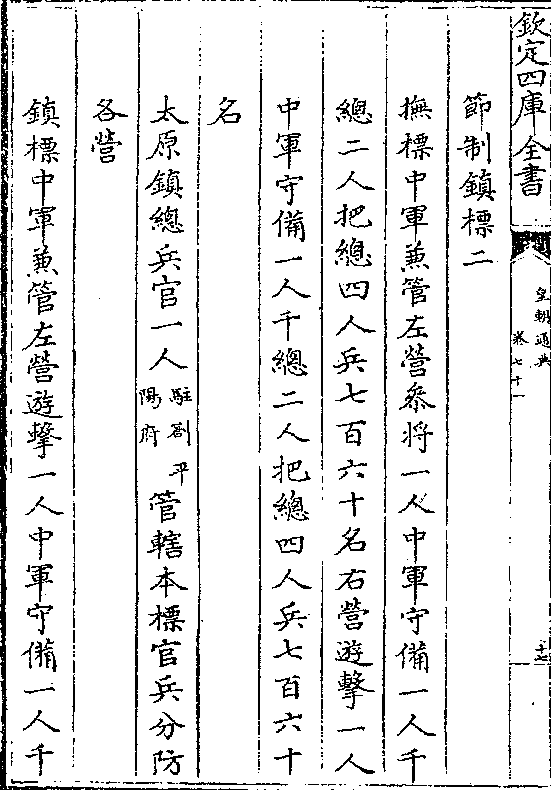 欽定四庫全書
皇朝通典
卷七十一
十七
節制鎮標二
撫標中軍兼管左營叅將一人中軍守備一人千
總二人把總四人兵七百六十名右營遊擊一人
中軍守備一人千總二人把總四人兵七百六十
名
太原鎮總兵官一人駐劄平陽府管轄本標官兵分防
各營
鎮標中軍兼管左營遊擊一人中軍守備一人千